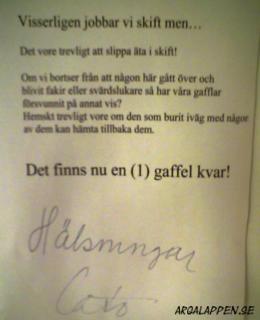 Visserligen jobbar vi skift men…
Det vore trevligt att slippa äta i skift!
Om vi bortser från att någon här gått över och
blivit fakir eller svärdslukare så har våra gafflar
försvunnit på annat vis?
Hemskt trevligt vore om den som burit iväg med några
av dem kan hämta tillbaka dem.
Det finns nu en (1) gaffel kvar!
Hälsningar
ARGALAPPEN.SE